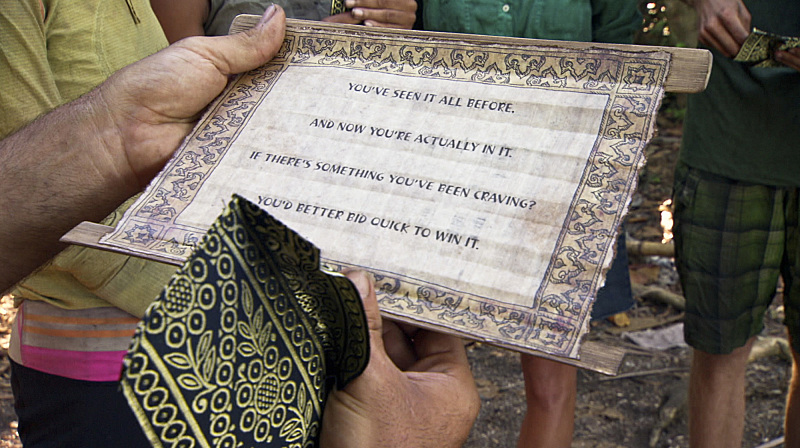 YOU'VE SEEN IT ALL BEFORE.
AND NOW YOU'RE ACTUALLY IN IT.
IF THERE'S SOMETHING YOU'VE BEEN CRAVING?
YOU'D BETTER BID QUICK TO WIN IT.